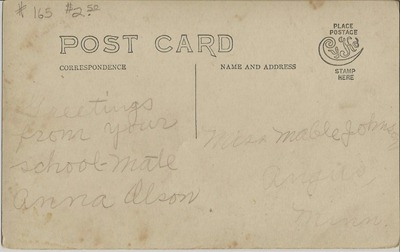 # 165 #2.50
POST CARD
CORRESPONDENCE
NAME AND ADDRESS
PLACE
POSTAGE
STAMP
HERE
Greetings
from your
school-mate
Anna Olson
Miss Mable Johnson
Angus
Minn.